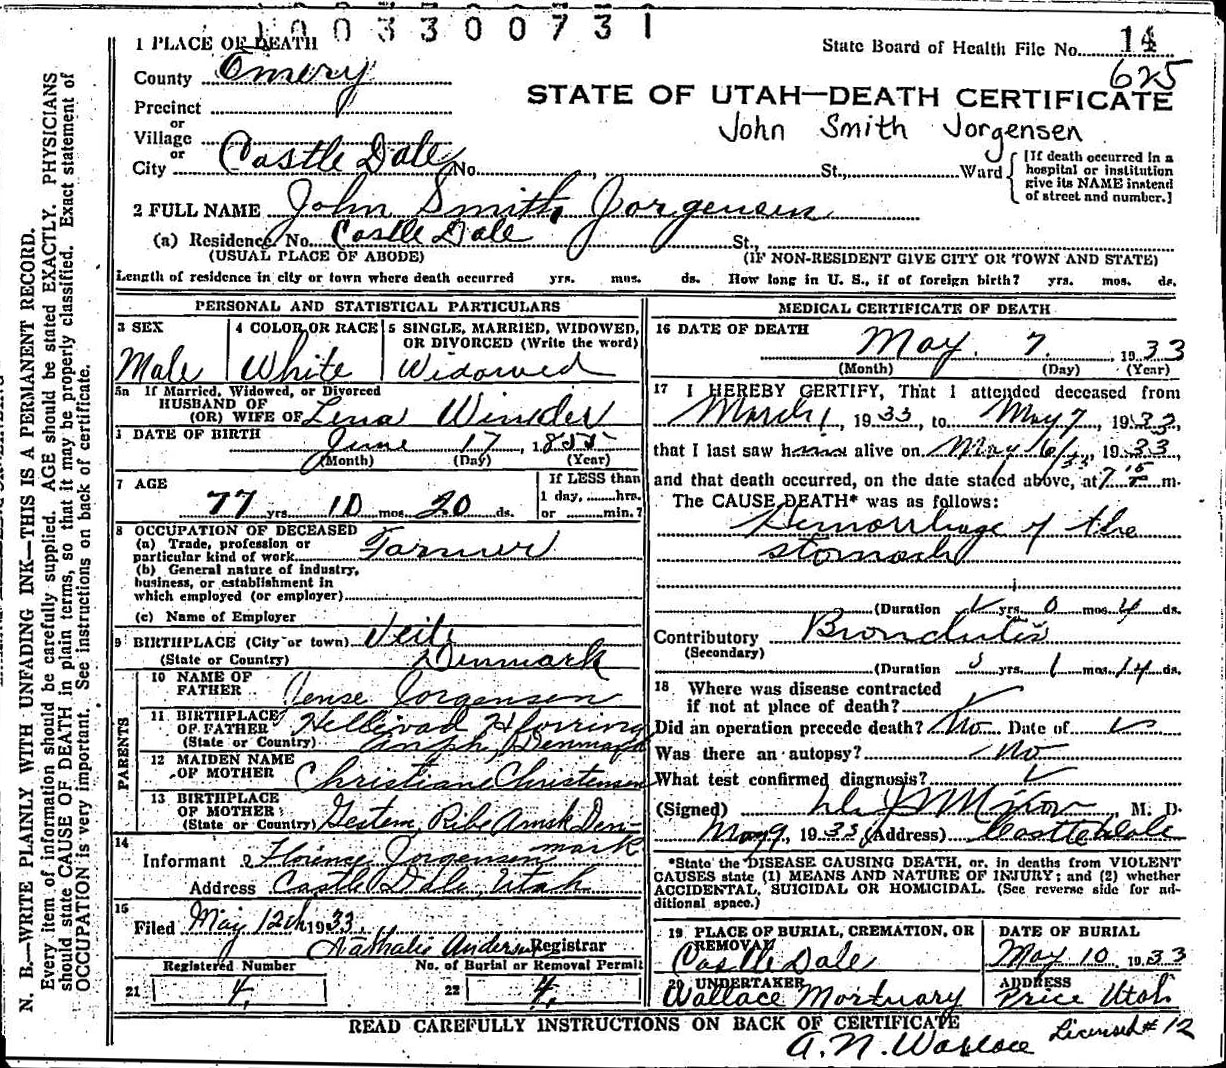 1003300731
1 PLACE OF DEATH
State Board of Health File No. 14
County Emery
625
Precinct
STATE OF UTAH—DEATH CERTIFICATE
or
Village
John Smith Jorgensen
or
City Castle Dale No. St., Ward
[If death occurred in a hospital or institution give its NAME instead of street and number.]
2 FULL NAME John Smith Jorgensen
(a) Residence. No. Castle Dale St.,
(USUAL PLACE OF ABODE) (IF NON-RESIDENT GIVE CITY OR TOWN AND STATE)
Length of residence in city or town where death occurred yrs. mos. ds. How long in U. S., if of foreign birth? yrs. mos. ds.
PERSONAL AND STATISTICAL PARTICULARS
3 SEX 4 COLOR OR RACE 5 SINGLE, MARRIED, WIDOWED, OR DIVORCED (Write the word)
Male White Widowed
5a If Married, Widowed, or Divorced
HUSBAND OF
(OR) WIFE OF Lena Winder
DATE OF BIRTH June 17, 1855
(Month) (Day) (Year)
7 AGE
77 yrs. 10 mos. 20 ds.
If LESS than
1 day, hrs.
or min.?
8 OCCUPATION OF DECEASED
(a) Trade, profession or
particular kind of work Farmer
(b) General nature of industry,
business, or establishment in
which employed (or employer)
(c) Name of Employer
9 BIRTHPLACE (City or town) Veile
(State or Country) Denmark
PARENTS
10 NAME OF
FATHER Jense Jorgensen
11 BIRTHPLACE
OF FATHER Hellivad Hforring
(State or Country) Denmark
12 MAIDEN NAME
OF MOTHER Christiane Christensen
13 BIRTHPLACE
OF MOTHER
(State or Country) Gestem, Ribe Amsk Denmark
14
Informant Florence Jorgensen
Address Castle Dale, Utah
15
Filed May 12th 1933.
Nathalie Anderson Registrar
Registered Number No. of Burial or Removal Permit
21 4. 22 4.
MEDICAL CERTIFICATE OF DEATH
16 DATE OF DEATH
May 7. , 1933
(Month) (Day) (Year)
17 I HEREBY CERTIFY, That I attended deceased from
March 1, 1933, to May 7, 1933,
that I last saw him alive on May 6, 1933,
and that death occurred, on the date stated above, at 7 15 m.
The CAUSE DEATH* was as follows:
Hemorrhage of the
stomach
(Duration yrs. 0 mos. 4 ds.
Contributory Bronchitis
(Secondary)
(Duration yrs. 1 mos. 14 ds.
18 Where was disease contracted
if not at place of death?
Did an operation precede death? No Date of
Was there an autopsy? No
What test confirmed diagnosis?
(Signed) M. D.
May 9, 1933 (Address) Castle Dale
*State the DISEASE CAUSING DEATH, or, in deaths from VIOLENT
CAUSES state (1) MEANS AND NATURE OF INJURY; and (2) whether
ACCIDENTAL, SUICIDAL OR HOMICIDAL. (See reverse side for ad-
ditional space.)
19 PLACE OF BURIAL, CREMATION, OR REMOVAL
Castle Dale
DATE OF BURIAL
May 10, 1933
20 UNDERTAKER
Wallace Mortuary
ADDRESS
Price Utah
READ CAREFULLY INSTRUCTIONS ON BACK OF CERTIFICATE
A. N. Wallace
Licensed # 12
N. B.—WRITE PLAINLY WITH UNFADING INK—THIS IS A PERMANENT RECORD.
Every item of information should be carefully supplied. AGE should be stated EXACTLY. PHYSICIANS
should state CAUSE OF DEATH in plain terms, so that it may be properly classified. Exact statement of
OCCUPATION is very important. See instructions on back of certificate.